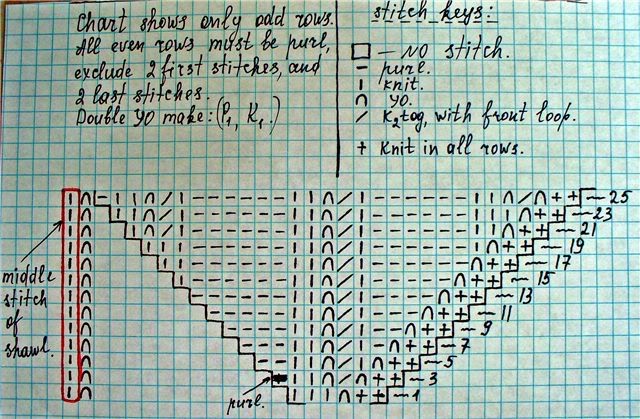 Chart shows only odd rows.
All even rows must be purl,
exclude 2 first stitches, and
2 last stitches.
Double YO make: (P1, K1.)
stitch keys:
— NO stitch.
– purl.
| knit.
∩ YO.
/ K2tog, with front loop.
+ knit in all rows.
25
23
21
19
17
15
13
11
9
7
5
3
1
middle
stitch
of
shawl.
purl.